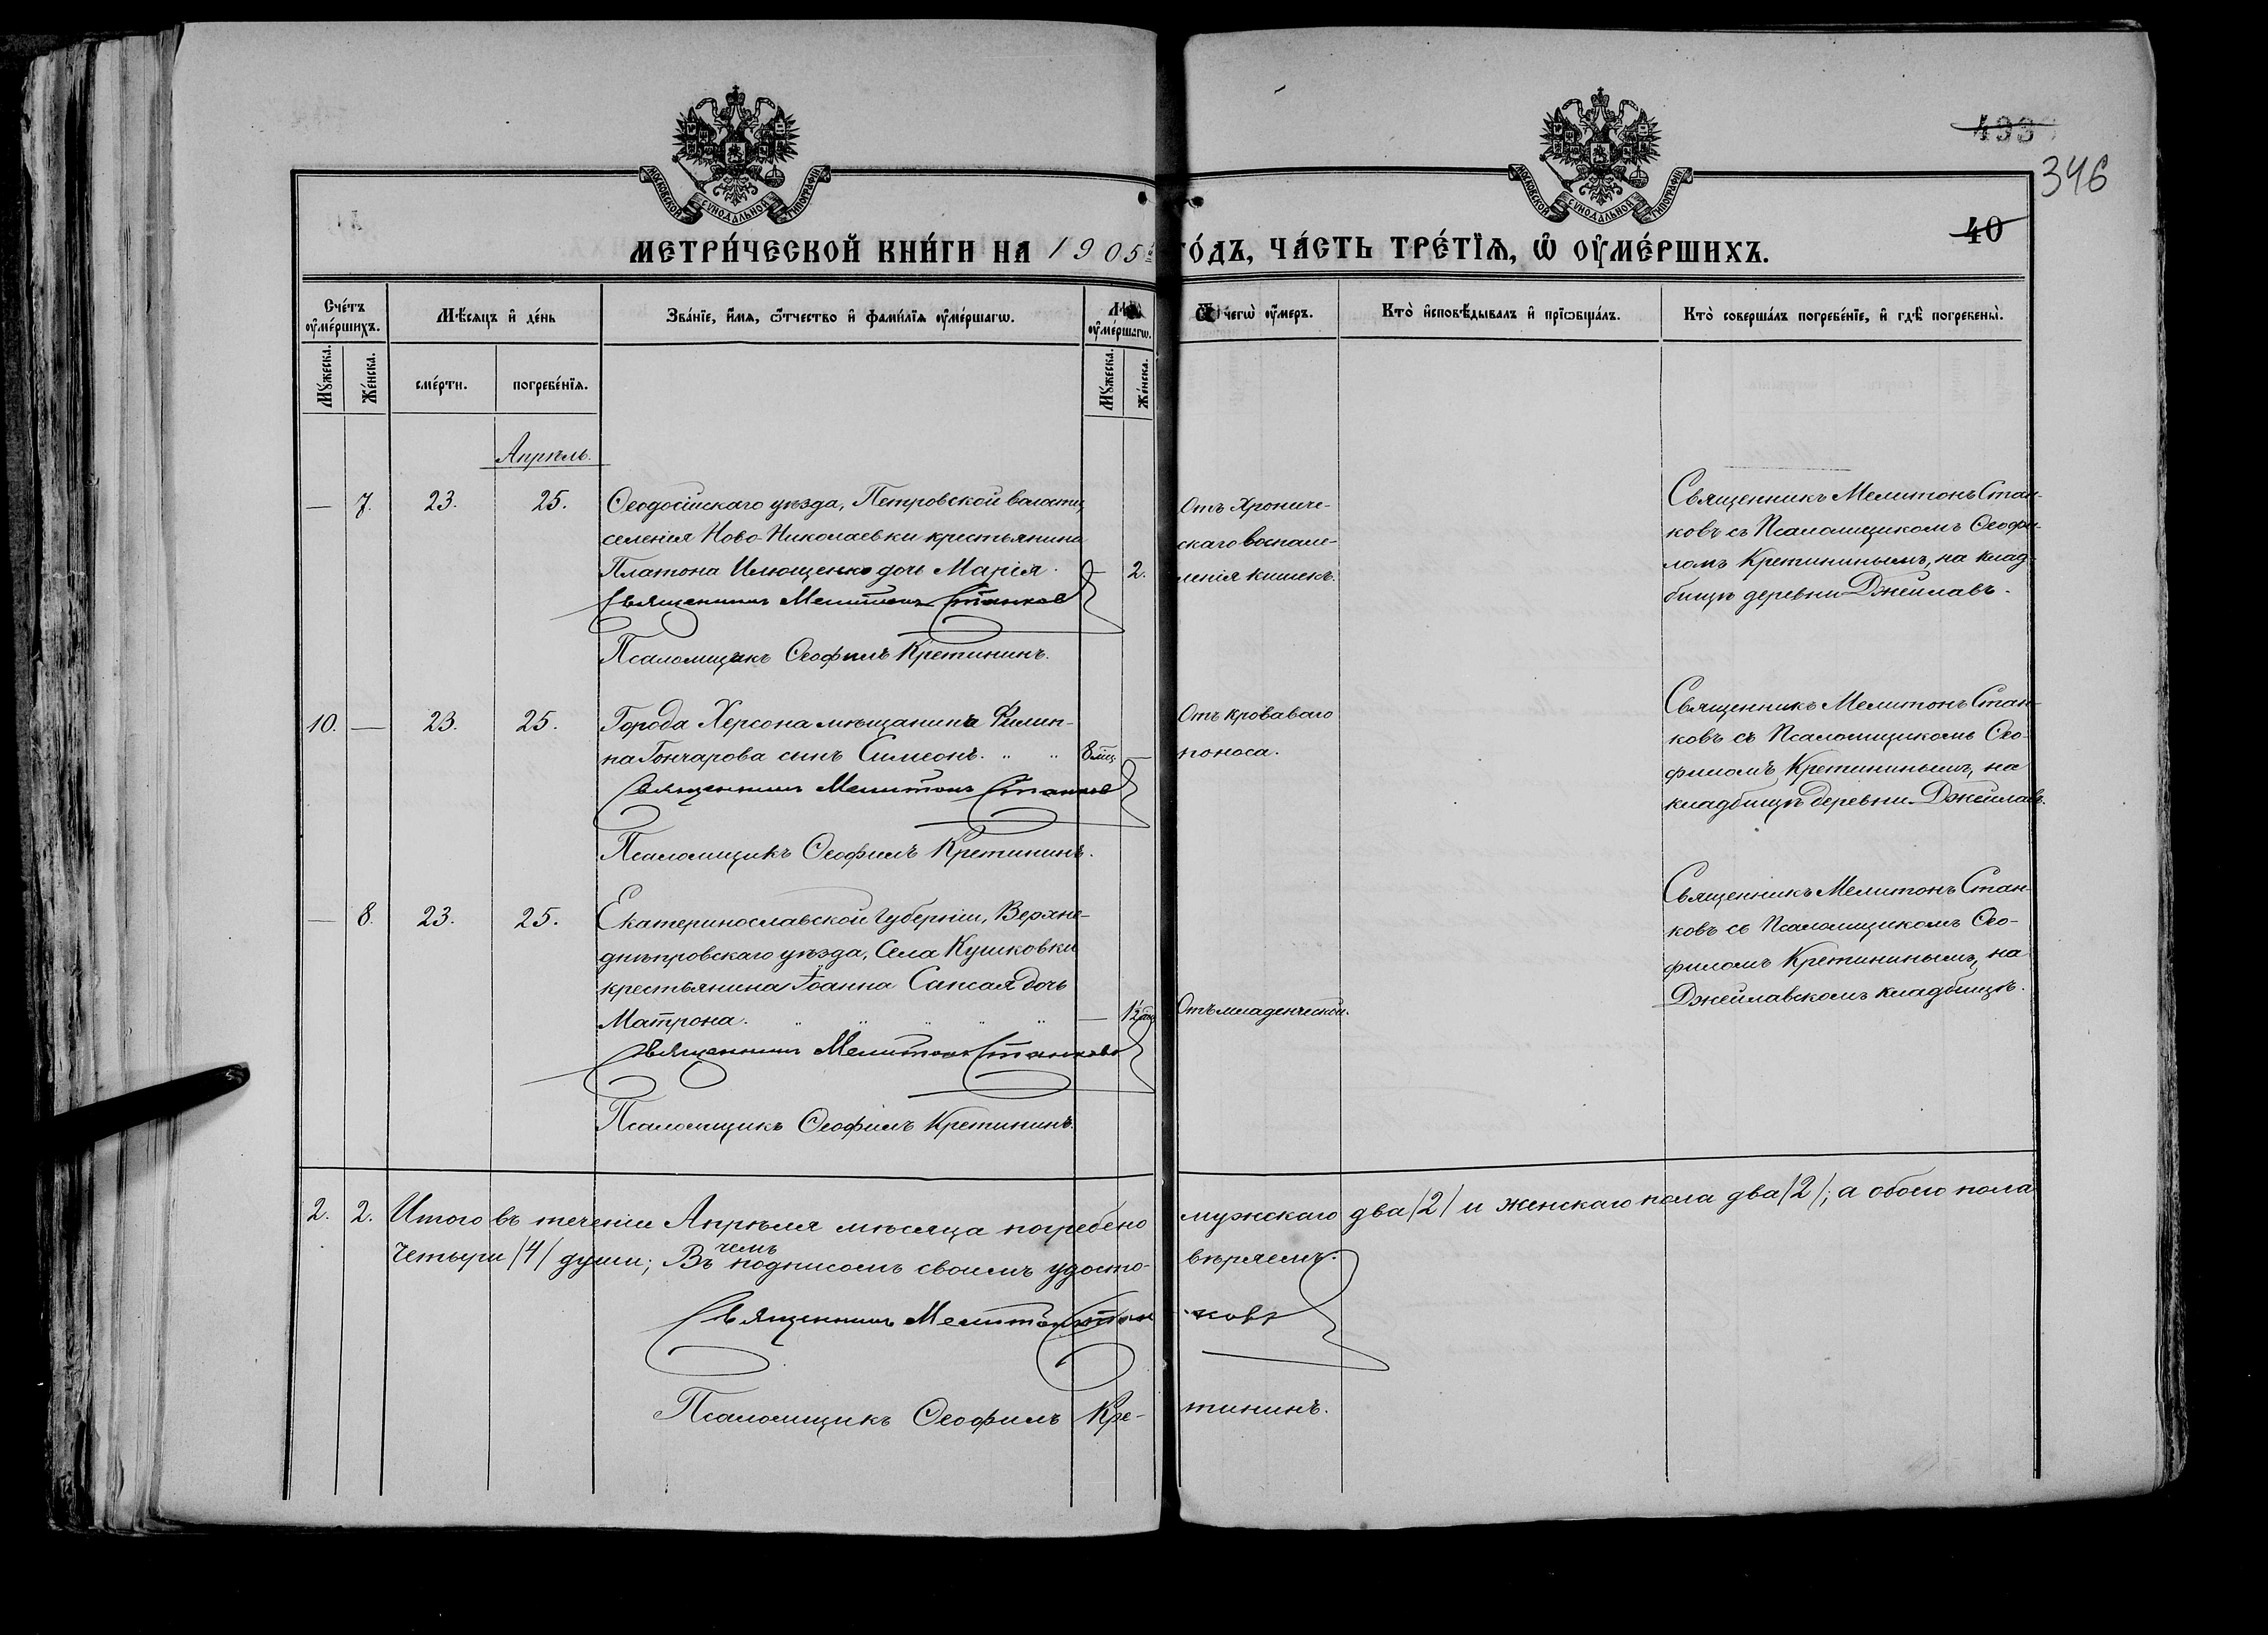 МОСКОВСКОЙ СѴНОДАЛЬНОЙ ТИПОГРАФІИ
МОСКОВСКОЙ СѴНОДАЛЬНОЙ ТИПОГРАФІИ
493
346
40
МЕТРИ́ЧЕСКОЙ КНИ́ГИ НА 1905й ГО́ДЪ, ЧА́СТЬ ТРЕ́ТЇѦ, Ѿ ОУ҆МЕ́РШИХЪ.
Сче́тъ оу҆ме́ршихъ.
Мѣ́сѧцъ и҆ де́нь
Зва́нїе, и҆́мѧ, ѻ҆́тчество и҆ фами́лїѧ оу҆ме́ршагѡ.
оу҆ме́ршагѡ.
чегѡ̀ оу҆́меръ.
Кто̀ и҆сповѣ́дывалъ и҆ прїѡбща́лъ.
Кто̀ соверша́лъ погребе́нїе, и҆ гдѣ̀ погребены̀.
Мꙋ́жеска.
Же́нска.
сме́рти.
погребе́нїѧ.
Мꙋ́жеска.
Же́нска.
Апрѣль.
— 7. 23. 25. Ѳеодосійскаго уѣзда, Петровской волости,
селенія Ново-Николаевки крестьянина
Платона Илющенко дочь Марія. — 2.
Священникъ Мелитонъ Станковъ
Псаломщикъ Ѳеофилъ Кретининъ.
Отъ Хрониче-
скаго воспале-
ленія кишекъ.
Священникъ Мелитонъ Стан-
ковъ съ Псаломщикомъ Ѳеофи-
ломъ Кретининымъ, на клад-
бищѣ деревни Джейлавъ.
10. — 23. 25. Города Херсона мѣщанина Филип-
па Гончарова сынъ Симеонъ. " " 8 мѣс. —
Священникъ Мелитонъ Станковъ
Псаломщикъ Ѳеофилъ Кретининъ.
Отъ кроваваго
поноса.
Священникъ Мелитонъ Стан-
ковъ съ Псаломщикомъ Ѳео-
филомъ Кретининымъ, на
кладбищѣ деревни Джейлавъ.
— 8. 23. 25. Екатеринославской Губерніи, Верхне-
днѣпровскаго уѣзда, Села Кушковки
крестьянина Іоанна Сапсая дочь
Матрона. " " " " " — 1½
Священникъ Мелитонъ Станковъ
Псаломщикъ Ѳеофилъ Кретининъ.
Отъ младенческой.
Священникъ Мелитонъ Стан-
ковъ съ Псаломщикомъ Ѳео-
филомъ Кретининымъ, на
Джейлавскомъ кладбищѣ.
2. 2. Итого въ теченіи Апрѣля мѣсяца погребено мужскаго два /2/ и женскаго пола два /2/; а обоего пола
четыри /4/ души; Въ чемъ подписомъ своимъ удосто- вѣряемъ.
Священникъ Мелитонъ Стан- ковъ
Псаломщикъ Ѳеофилъ Кре- тининъ.